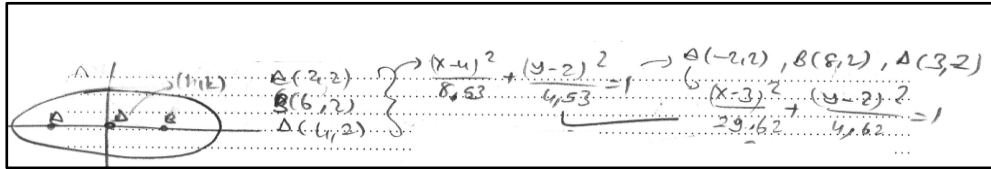 (h,k)
A(2,2)
B(6,2)
Δ(4,2)
→ (x-4)²/8,53 + (y-2)²/4,53 = 1 → A(-2,2), B(8,2), Δ(3,2)
(x-3)²/29,62 + (y-2)²/4,62 = 1